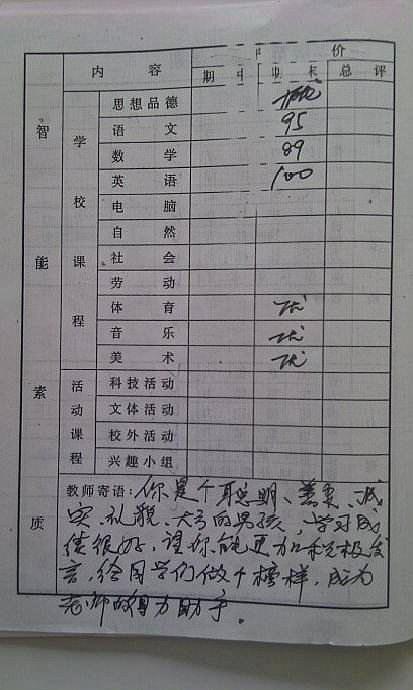 价
内 容 期 中 期 末 总 评
智 能 素 质
学 校 课 程
思想品德 优
语 文 95
数 学 89
英 语 100
电 脑
自 然
社 会
劳 动
体 育 优
音 乐 优
美 术 优
活 动 课 程
科技活动
文体活动
校外活动
兴趣小组
教师寄语:你是个聪明、善良、诚
实、礼貌、大方的男孩,学习成
绩很好,望你能更加积极发
言,给同学们做个榜样,成为
老师的得力助手。